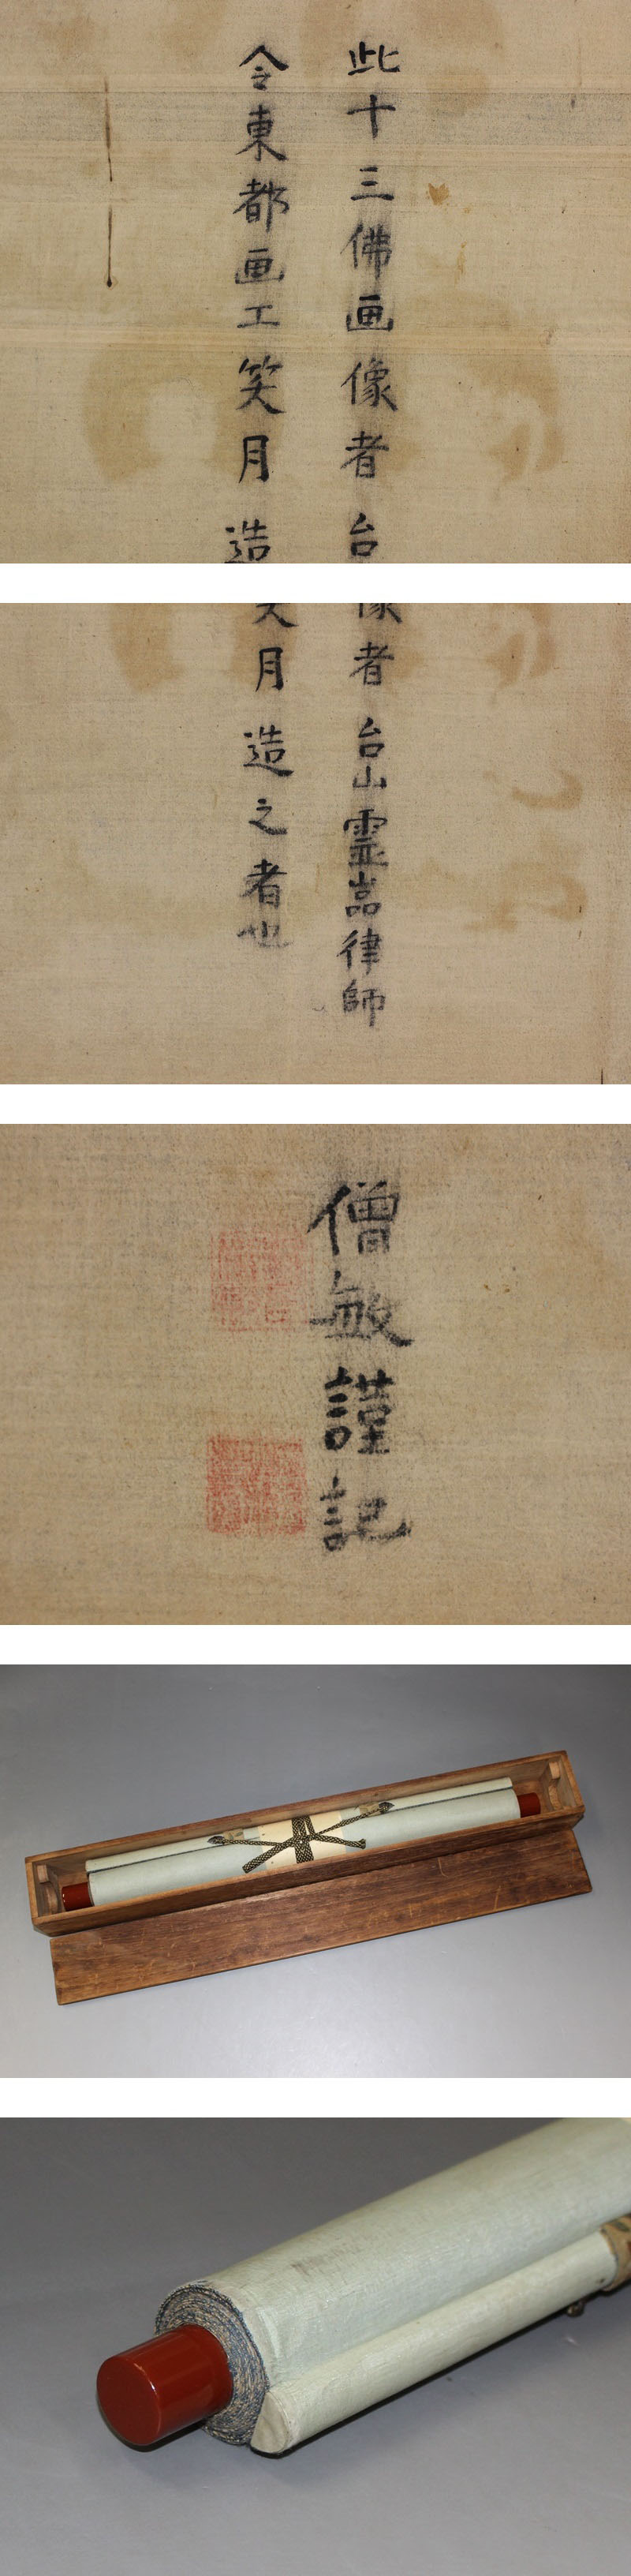 此十三佛画像者台
令東都画工笑月造
者台山霊嵓律師
月造之者也
僧敏謹記